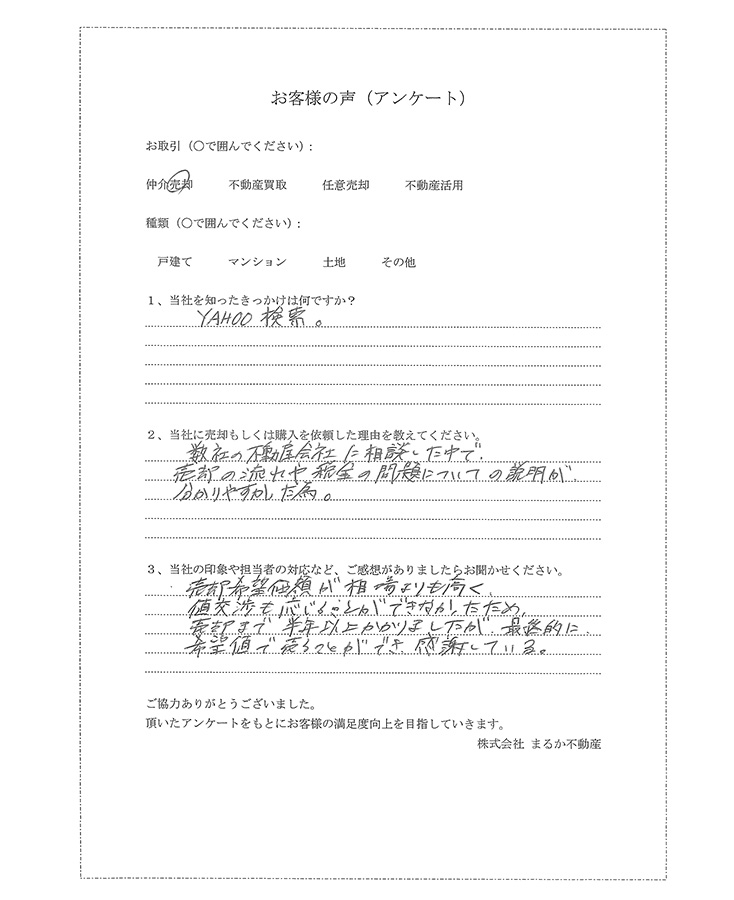 お客様の声（アンケート）
お取引（〇で囲んでください）：
仲介売却　不動産買取　任意売却　不動産活用
種類（〇で囲んでください）：
戸建て　マンション　土地　その他
１、当社を知ったきっかけは何ですか？
YAHOO 検索。
２、当社に売却もしくは購入を依頼した理由を教えてください。
数社の不動産会社に相談した中で、
売却の流れや税金の問題についての説明が、
分かりやすかした為。
３、当社の印象や担当者の対応など、ご感想がありましたらお聞かせください。
売却希望価額が相場よりも高く、
値交渉も応じることができなかたため、
売却まで半年以上かかりましたが、最終的に
希望値で売ることができ感謝している。
ご協力ありがとうございました。
頂いたアンケートをもとにお客様の満足度向上を目指していきます。
株式会社 まるか不動産